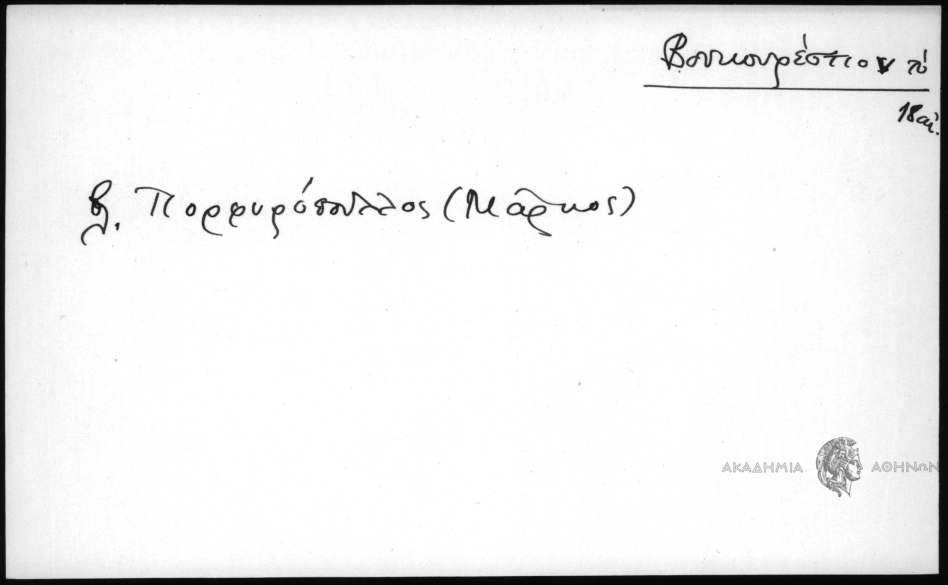 Βουκουρέστιον τό
18 αἰ.
βλ. Πορφυρόπουλλος (Μάρκος)
ΑΚΑΔΗΜΙΑ ΑΘΗΝΩΝ